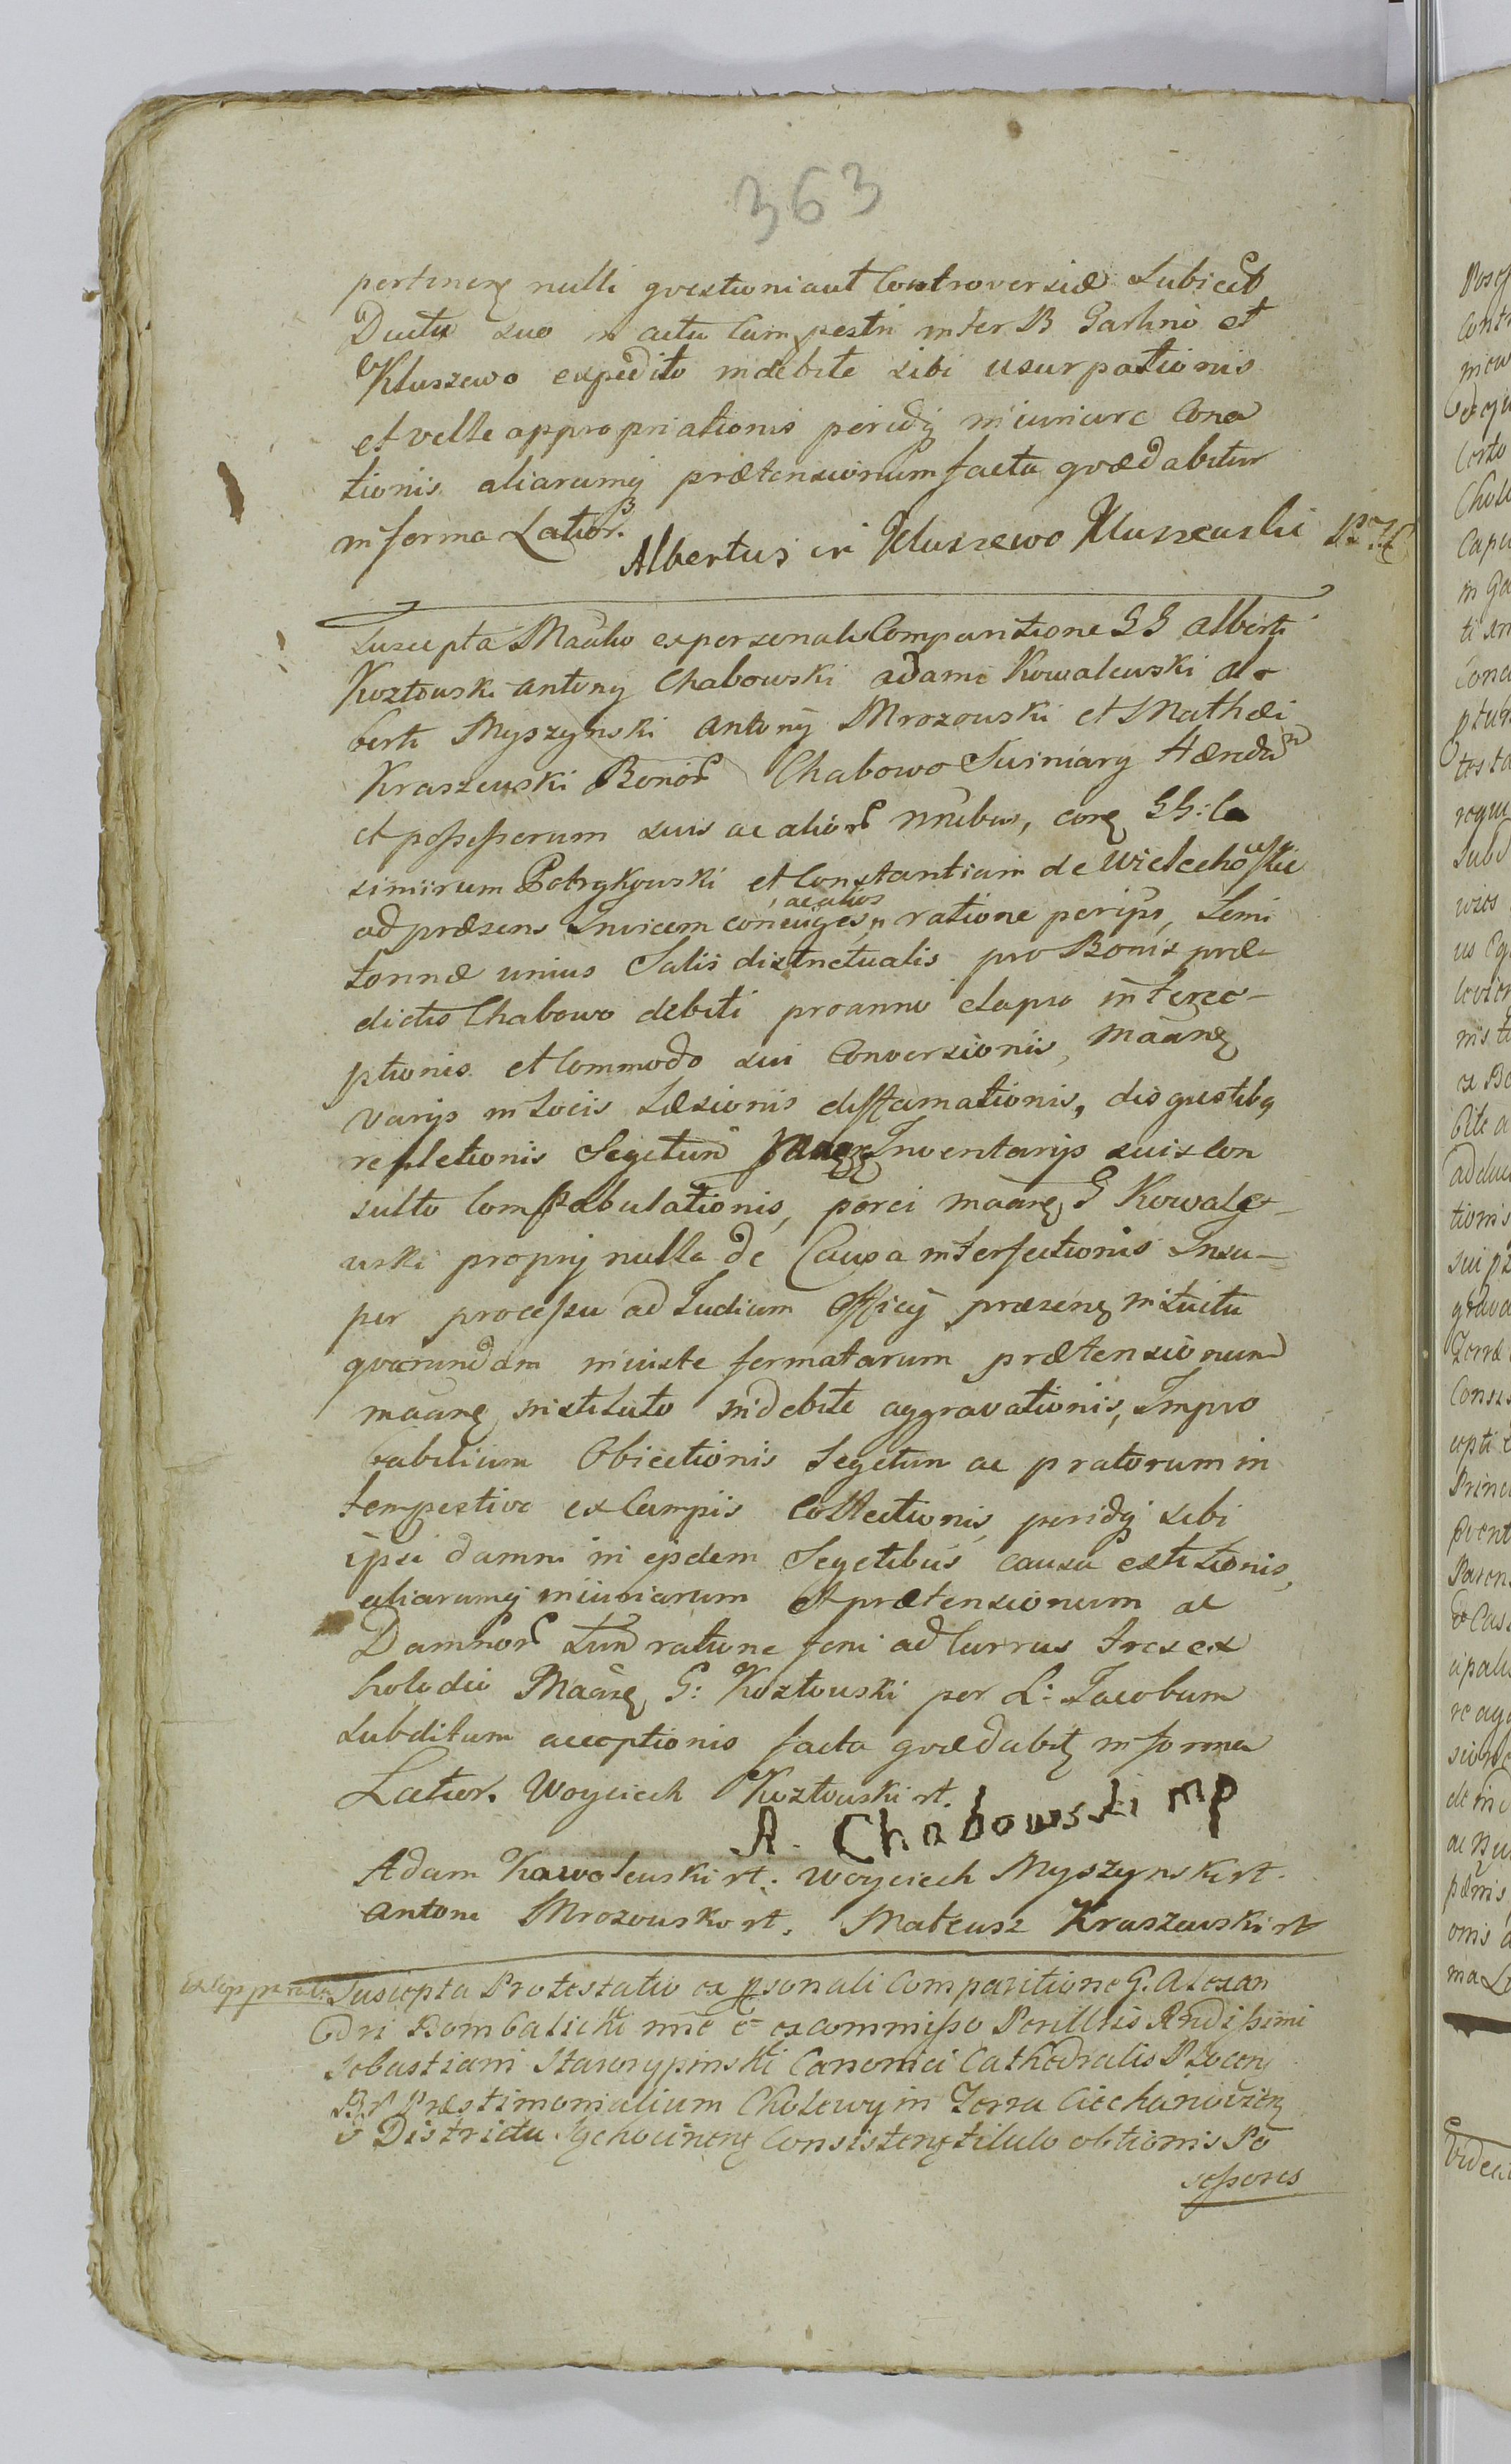 363
pertinenꝫ nulli qvestioni aut Controversiæ Subiect
Ductu suo in actu Campestri inter B Garlino et
Kluszewo expedito indebite sibi usurpationis
et velle appropriationis peridq iniuriare Cona
tionis aliarumq prætensionum facta qvæ dabitur
in forma Latior.
Albertus in Kluszewo Kluszewski
Suscepta Maãtio ex personali Comparitione GG Alberti
Kozłowski Antony Chabowski Adami Kowalewski Al-
berti Myszynski Antony Mrozowski et Mathæi
Kraszewski Bonor Chabowo Swiniary Hæredũ
et possessorum suis ac alior nñibus, corꝫ GG: Ca
simirum Potrykowski et Constantiam de Wielechowskie
ad præsens Invicem coniuges, ac alios ratione per ip̃s, Semi
tonnæ unius Salis districtualis pro Bonis præ-
dictis Chabowo debiti pro anno elapso interce-
ptionis et Commodo sui Conversionis, maãnꝫ
varijs in Locis Læsionis diffamationis, disgustibq
repletionis Segetum Inventarijs suis con
sulto Compabulationis, porci maãnꝫ G Kowale-
wski proprij nulla de Causa interfectionis Insu-
per processu ad Iudicium Officij præsenꝫ intuitu
qvarundam iniuste formatarum prætensionum
maãnꝫ instituto indebite aggravationis, Impro
babilium Obiectionis Segetum ac pratorum in
tempestive ex Campis Collectionis, peridq sibi
ipsi damni in ejsdem Segetibus causa extitionis,
aliarumq iniuriarum et prætensionum ac
Damnor tum ratione feni ad Currus tres ex
holodio Maãnꝫ G: Kozłowski per L: Jacobum
subditum acceptionis facta qvæ dabitꝫ in forma
Latior. Woyciech Kozłowski rt.
A. Chabowski mp
Adam Kowalewski rt. Woyciech Myszynski rt.
Antoni Mrozowski rt. Mateusz Kraszewski rt
Suscepta Protestatio ex psonali Comparitione G. Alexan
dri Bombalicki nñe et ex commisso Perillris Rndissimi
Sebastiani Starorypinski Canonici Cathedralis Plocenꝫ
Br Præstimonialium Cholewy in Terra Ciechanovien
Districtu Sochocinenꝫ Consistenꝫ titulo obtionis Po
sessoris